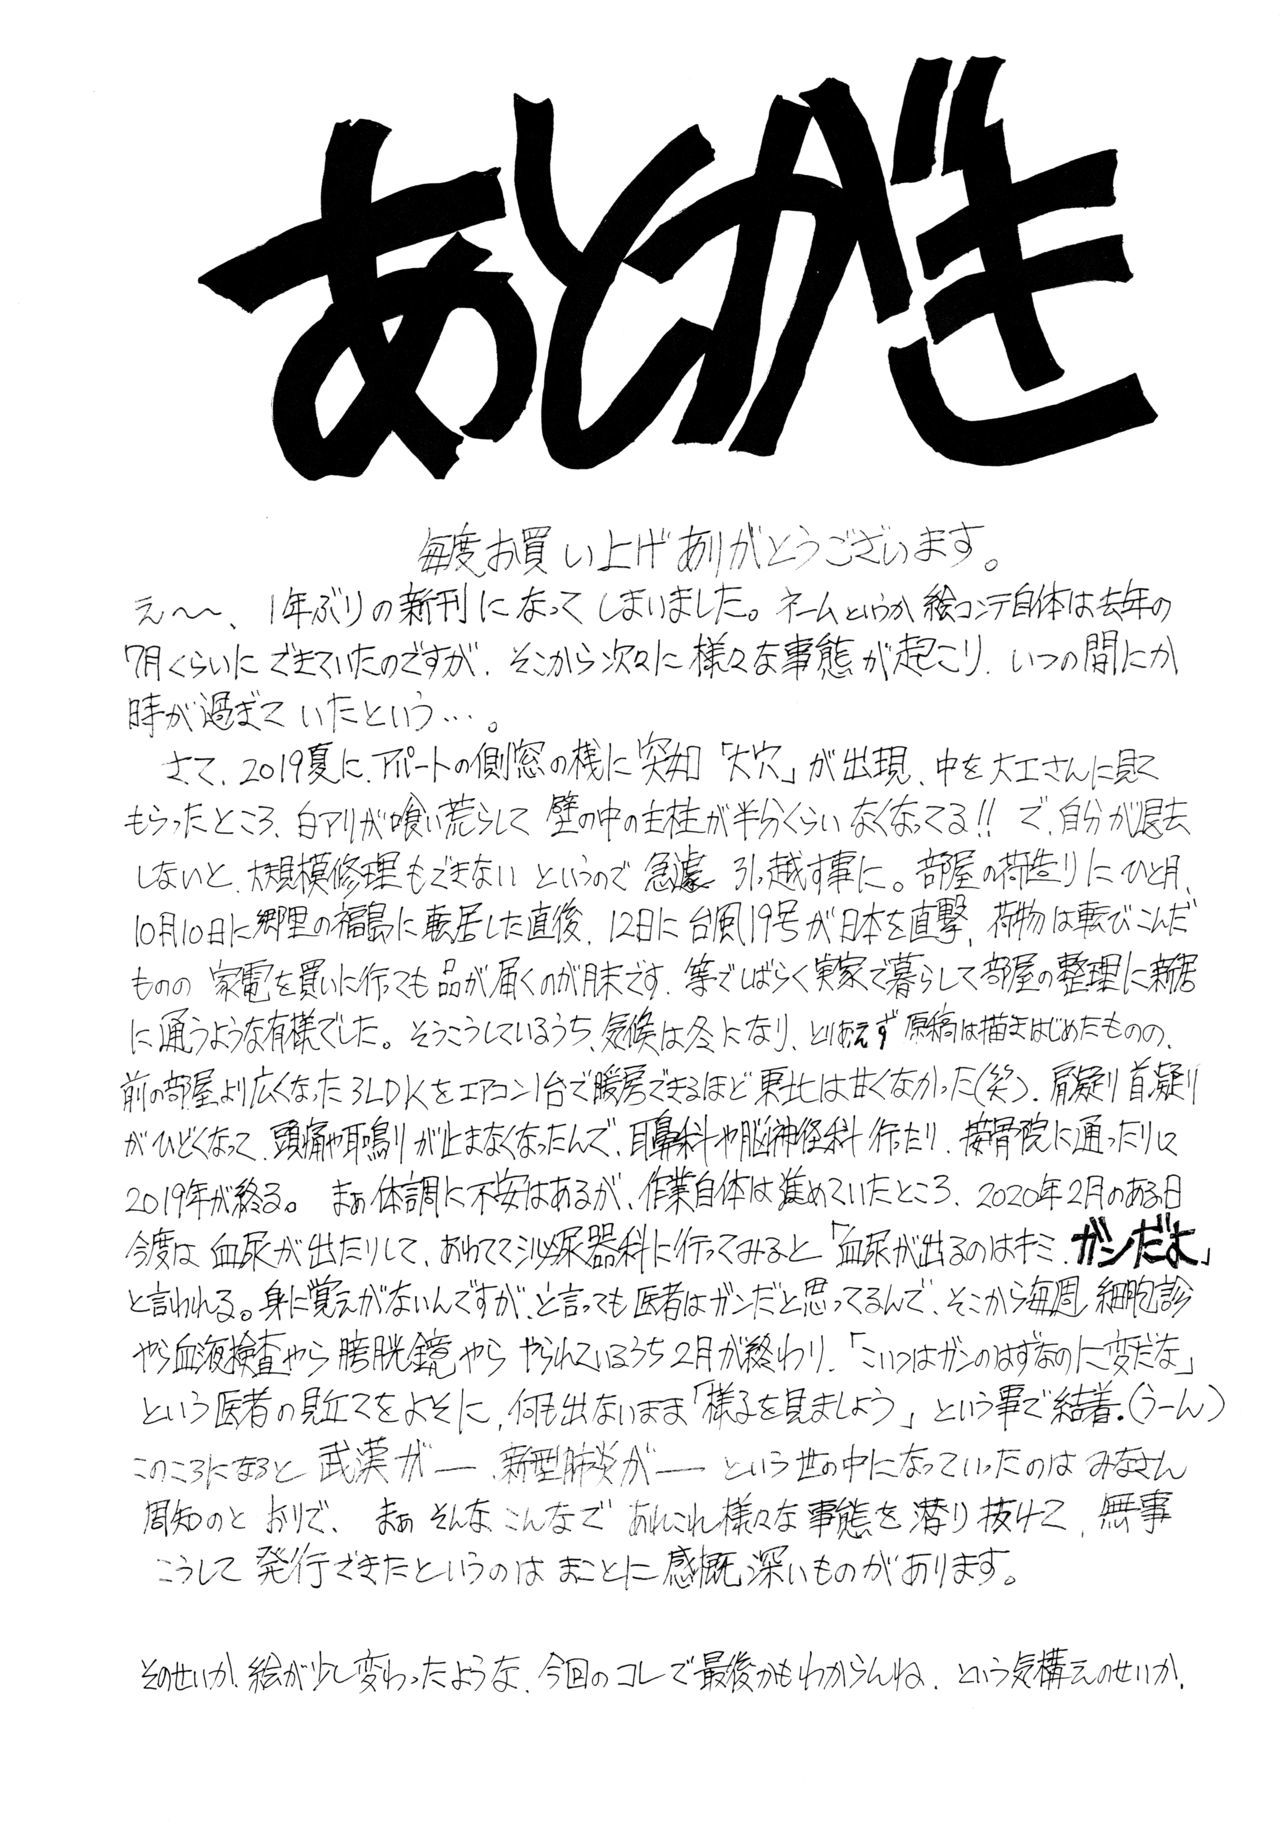 あとがき
毎度お買い上げありがとうございます。
え〜〜、1年ぶりの新刊になってしまいました。ネームというか絵コンテ自体は去年の
7月くらいにできていたのですが、そこから次々に様々な事態が起こり、いつの間にか
時が過ぎていたという…。
さて、2019夏に、アパートの側窓の桟に突如「大穴」が出現、中を大工さんに見て
もらったところ、白アリが喰い荒らして壁の中の主柱が半分くらいなくなってる!!で、自分が退去
しないと、大規模修理もできないというので急遽引っ越す事に。部屋の荷造りにひと月、
10月10日に郷里の福島に転居した直後、12日に台風19号が日本を直撃、荷物は転びこんだ
ものの家電を買いに行っても品が届くのが月末です、等でしばらく実家で暮らして部屋の整理に新居
に通うような有様でした。そうこうしているうち、気候は冬になり、とりあえず原稿は描きはじめたものの、
前の部屋より広くなった3LDKをエアコン1台で暖房できるほど東北は甘くなかった(笑)、肩凝り首凝り
がひどくなって、頭痛や耳鳴りが止まなくなったんで、耳鼻科や脳神経科行たり、接骨院に通ったりに
2019年が終る。まぁ体調に不安はあるが、作業自体は進めていたところ、2020年2月のある日
今度は血尿が出たりして、あわてて泌尿器科に行ってみると「血尿が出るのはキミ、ガンだよ」
と言われる。身に覚えがないんですが、と言っても医者はガンだと思ってるんで、そこから毎週細胞診
やら血液検査やら膀胱鏡やらやられているうち2月が終わり、「こいつはガンのはずなのに変だな」
という医者の見立てをよそに、何も出ないまま「様子を見ましょう」という事で結着。(うーん)
このころになると武漢が―、新型肺炎が―という世の中になっていったのはみなさん
周知のとおりで、まぁそんなこんなであれこれ様々な事態を潜り抜けて、無事
こうして発行できたというのはまことに感慨深いものがあります。
そのせいか、絵が少し変わったような、今回のコレで最後かもわからんね、という気構えのせいか、